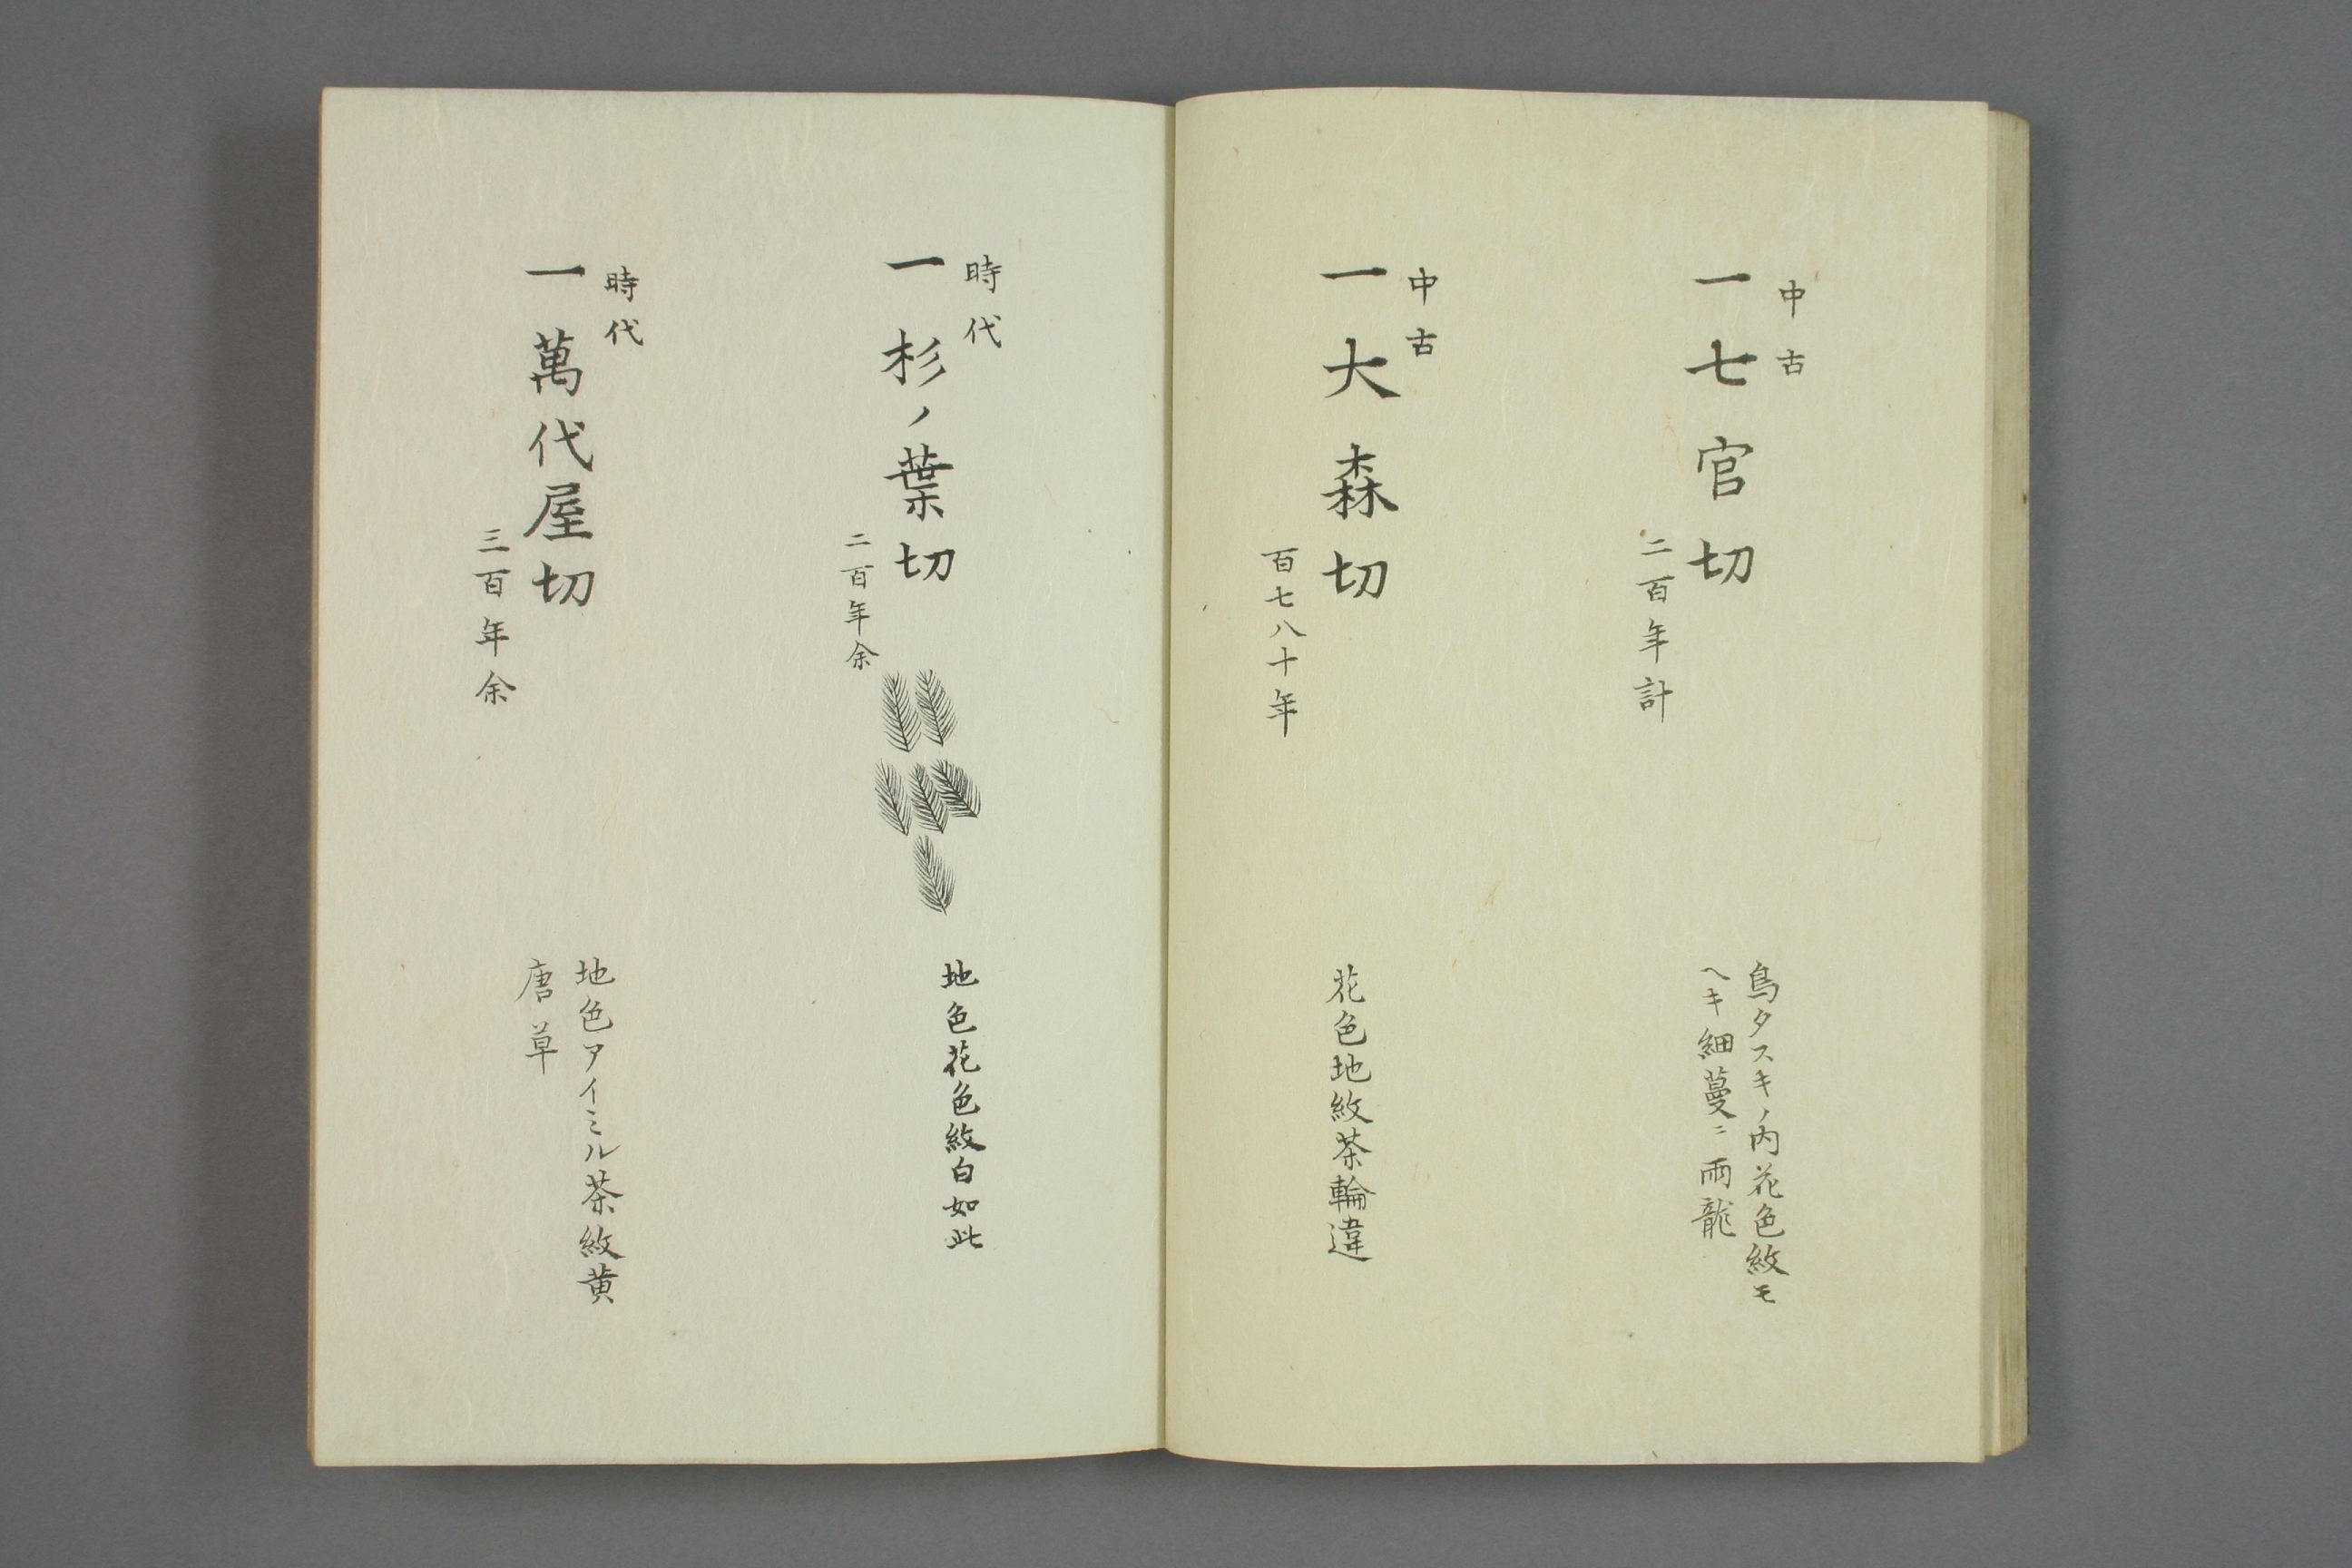 中古
一七官切
二百年計
鳥タスキノ内花色紋モ
ヘキ細蔓ニ雨龍
中古
一大森切
百七八十年
花色地紋茶輪違
時代
一杉ノ葉切
二百年余
地色花色紋白如此
時代
一萬代屋切
三百年余
地色アイミル茶紋黄
唐草